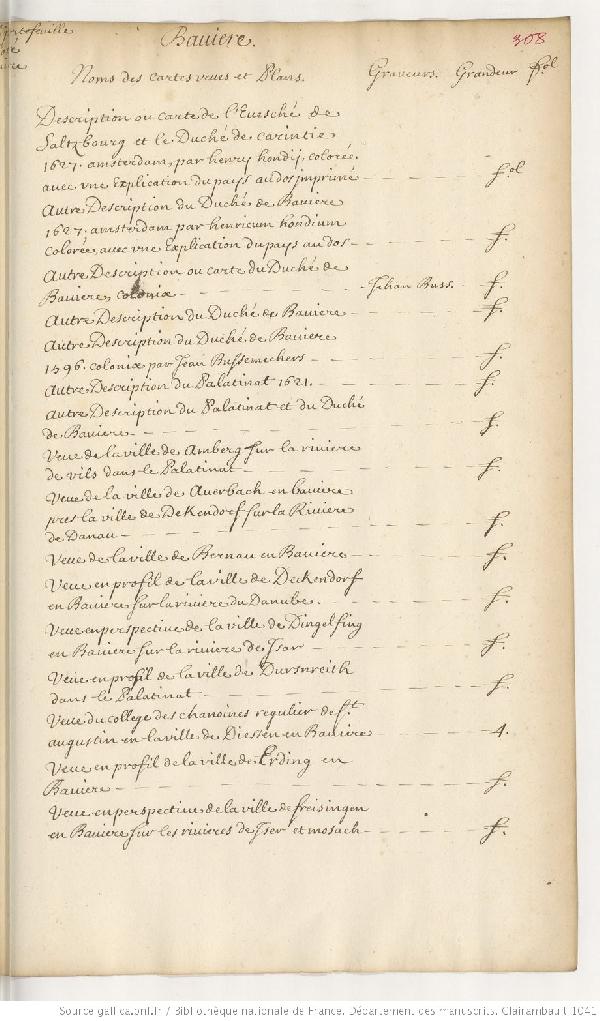 portefeuille
308
Baviere.
Noms des cartes veues et Plans. Graveurs. Grandeur fol
Description ou carte de l'Evesché de
Saltzbourg et le Duché de carintie
1627. amsterdam, par henry hondij, colorée.
avec vne Explication du pays au dos imprimé fol
Autre Description du Duché de Baviere
1627. amsterdam par henricum hondium
colorée, avec vne Explication du pays au dos f.
Autre Description ou carte du Duché de
Baviere, coloniæ Jehan Buss. f.
Autre Description du Duché de Baviere f.
Autre Description du Duché de Baviere
1596. coloniæ par Jean Bussemechers f.
Autre Description du Palatinat 1621. f.
Autre Description du Palatinat et du Duché
de Baviere f.
Veue de la ville de Amberg sur la riviere
de vils dans le Palatinat f.
Veue de la ville de Auerbach en baviere
pres la ville de Dekendorf sur la Riviere
de Danau f.
Veue de la ville de Bernau en Baviere f.
Veue en profil de la ville de Deckendorf
en Baviere sur la riviere du Danube. f.
Veue en perspective de la ville de Dingelfing
en Baviere sur la riviere de Isar f.
Veue en profil de la ville de Dursnreith
dans le Palatinat f.
Veue du college des chanoines regulier de st
augustin en la ville de Diessen en Baviere 4.
Veue en profil de la ville de Erding en
Baviere f.
Veue en perspective de la ville de freisingen
en Baviere sur les rivieres de Iser et mosach f.
Source gallica.bnf.fr / Bibliothèque nationale de France. Département des manuscrits. Clairambault 1041